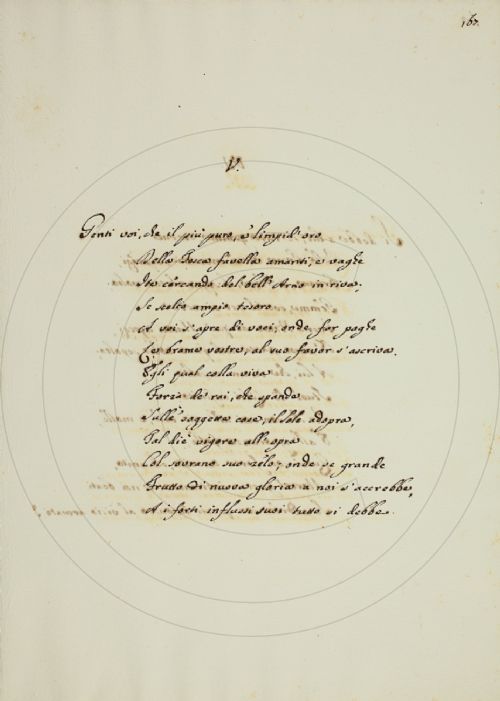 167.
V.
Genti voi, che il più puro, e limpid' oro
Della Tosca favella amanti, e vaghe
Ite cercando del bell' Arno in riva;
Se scelto ampio tesoro
A voi s'apre di voci, onde for paghe
Le brame vostre, al suo favor s'ascriva.
Egli qual colla viva
Forza de' rai, che spande
Sulle soggette cose, il Sole adopra,
Tal diè vigore all' opra
Col sovrano suo zelo; onde se grande
Frutto di nuova gloria a noi s'accrebbe,
A i forti influssi suoi tutto si debbe.